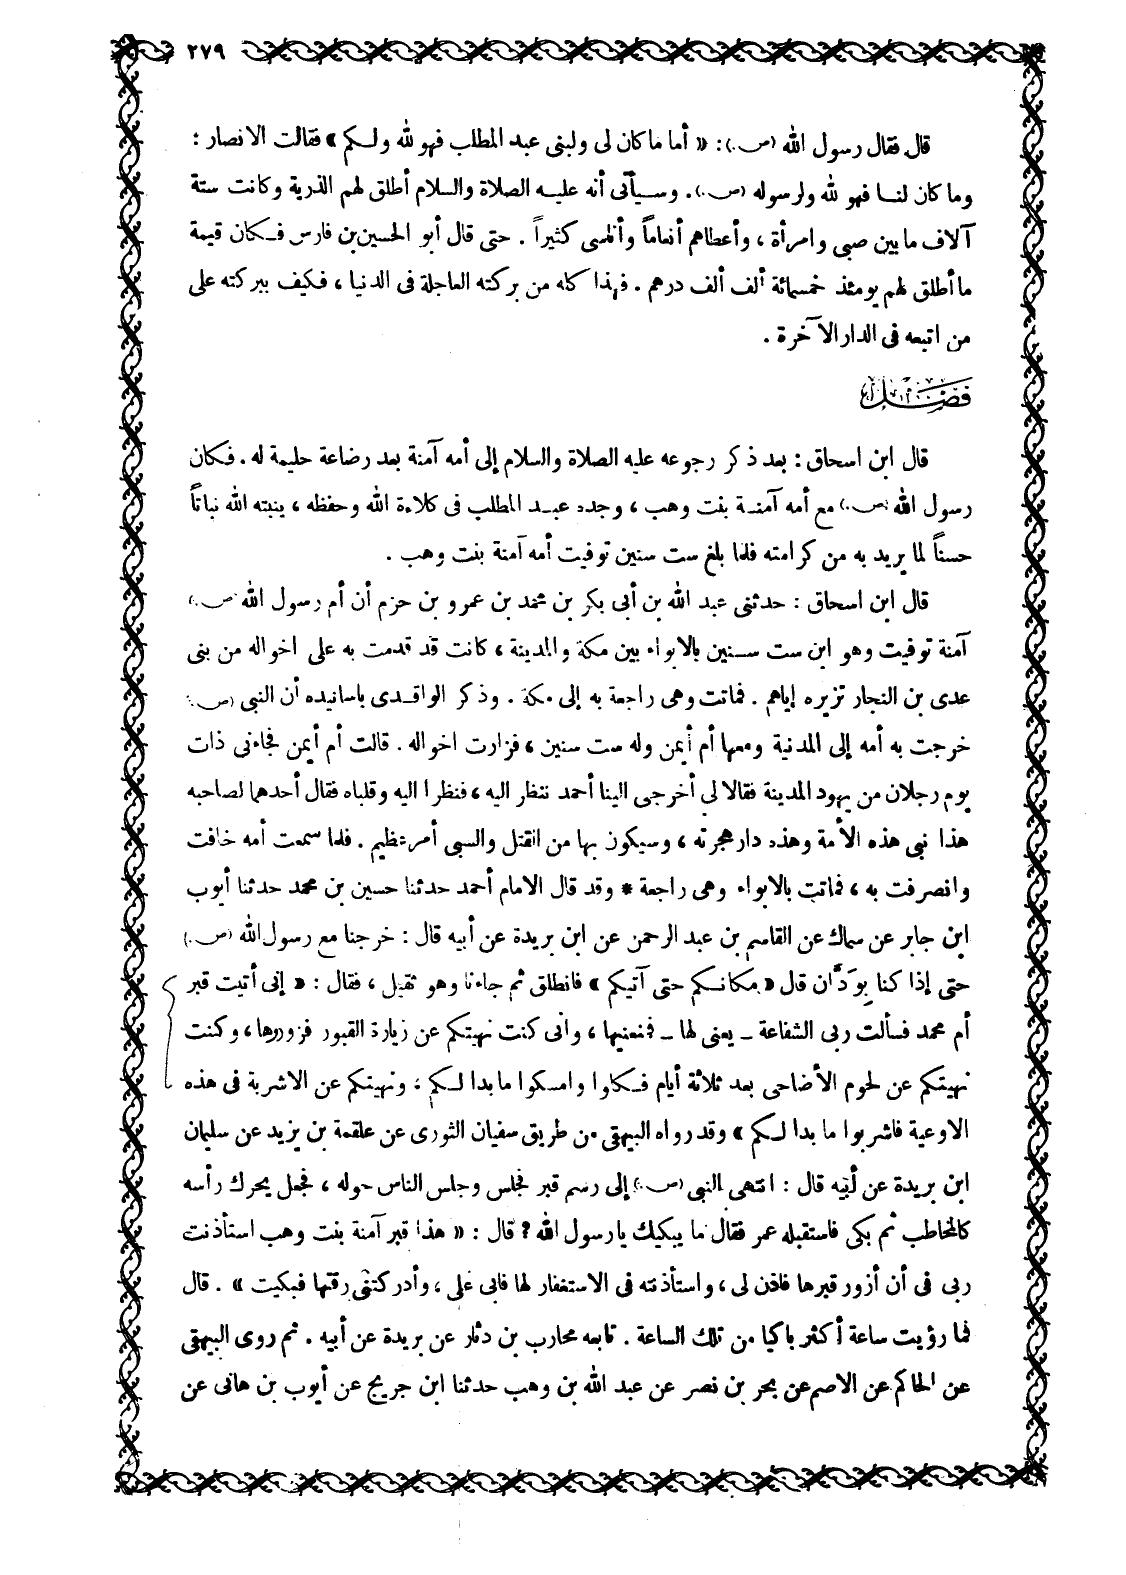 ٢٧٩
قال فقال رسول الله (ص.): « أما ما كان لى ولبنى عبد المطلب فهو لله ولكم » فقالت الانصار :
وما كان لنا فهو لله ولرسوله (ص.). وسيأتى أنه عليه الصلاة والسلام أطلق لهم الذرية وكانت ستة
آلاف ما بين صبى وامرأة ، وأعطاهم أنعاماً وأناسى كثيراً . حتى قال أبو الحسين بن فارس فكان قيمة
ما أطلق لهم يومئذ خمسمائة ألف ألف درهم . فهذا كله من بركته العاجلة فى الدنيا ، فكيف ببركته على
من اتبعه فى الدار الآخرة .
فصل
قال ابن اسحاق : بعد ذكر رجوعه عليه الصلاة والسلام إلى أمه آمنة بعد رضاعة حليمة له . فكان
رسول الله (ص.) مع أمه آمنة بنت وهب ، وجده عبد المطلب فى كلاءة الله وحفظه ، ينبته الله نباتاً
حسناً لما يريد به من كرامته فلما بلغ ست سنين توفيت أمه آمنة بنت وهب .
قال ابن اسحاق : حدثنى عبد الله بن أبى بكر بن محمد بن عمرو بن حزم أن أم رسول الله (ص.)
آمنة توفيت وهو ابن ست سنين بالابواء بين مكة والمدينة ، كانت قد قدمت به على اخواله من بنى
عدى بن النجار تزيره إياهم . فماتت وهى راجعة به إلى مكة . وذكر الواقدى باسانيده أن النبى (ص.)
خرجت به أمه إلى المدنية ومعها أم أيمن وله ست سنين ، فزارت اخواله . قالت أم أيمن فجاءنى ذات
يوم رجلان من يهود المدينة فقالا لي أخرجى الينا أحمد ننظر اليه ، فنظرا اليه وقلباه فقال أحدهما لصاحبه
هذا نبى هذه الأمة وهذه دار هجرته ، وسيكون بها من القتل والسبى أمر عظيم . فلما سمعت أمه خافت
وانصرفت به ، فماتت بالابواء وهى راجعة * وقد قال الامام أحمد حدثنا حسين بن محمد حدثنا أيوب
ابن جابر عن سماك عن القاسم بن عبد الرحمن عن ابن بريدة عن أبيه قال : خرجنا مع رسول الله (ص.)
حتى إذا كنا بِوَدَّان قال « مكانكم حتى آتيكم » فانطلق ثم جاءنا وهو ثقيل ، فقال : « إنى أتيت قبر
أم محمد فسألت ربى الشفاعة - يعنى لها - فمنعنيها ، وانى كنت نهيتكم عن زيارة القبور فزوروها ، وكنت
نهيتكم عن لحوم الأضاحى بعد ثلاثة أيام فكلوا وامسكوا ما بدا لكم ، ونهيتكم عن الاشربة فى هذه
الاوعية فاشربوا ما بدا لكم » وقد رواه البيهقى من طريق سفيان الثورى عن علقمة بن يزيد عن سليمان
ابن بريدة عن أبيه قال : انتهى النبى (ص.) إلى رسم قبر فجلس وجلس الناس حوله ، فجعل يحرك رأسه
كالمخاطب ثم بكى فاستقبله عمر فقال ما يبكيك يا رسول الله ? قال : « هذا قبر آمنة بنت وهب استأذنت
ربى فى أن أزور قبرها فاذن لى ، واستأذنته فى الاستغفار لها فابى على ، وأدركتنى رقتها فبكيت » . قال
فما رؤيت ساعة أكثر باكيا من تلك الساعة . تابعه محارب بن دثار عن بريدة عن أبيه . ثم روى البيهقى
عن الحاكم عن الاصم عن بحر بن نصر عن عبد الله بن وهب حدثنا ابن جريج عن أيوب بن هانى عن